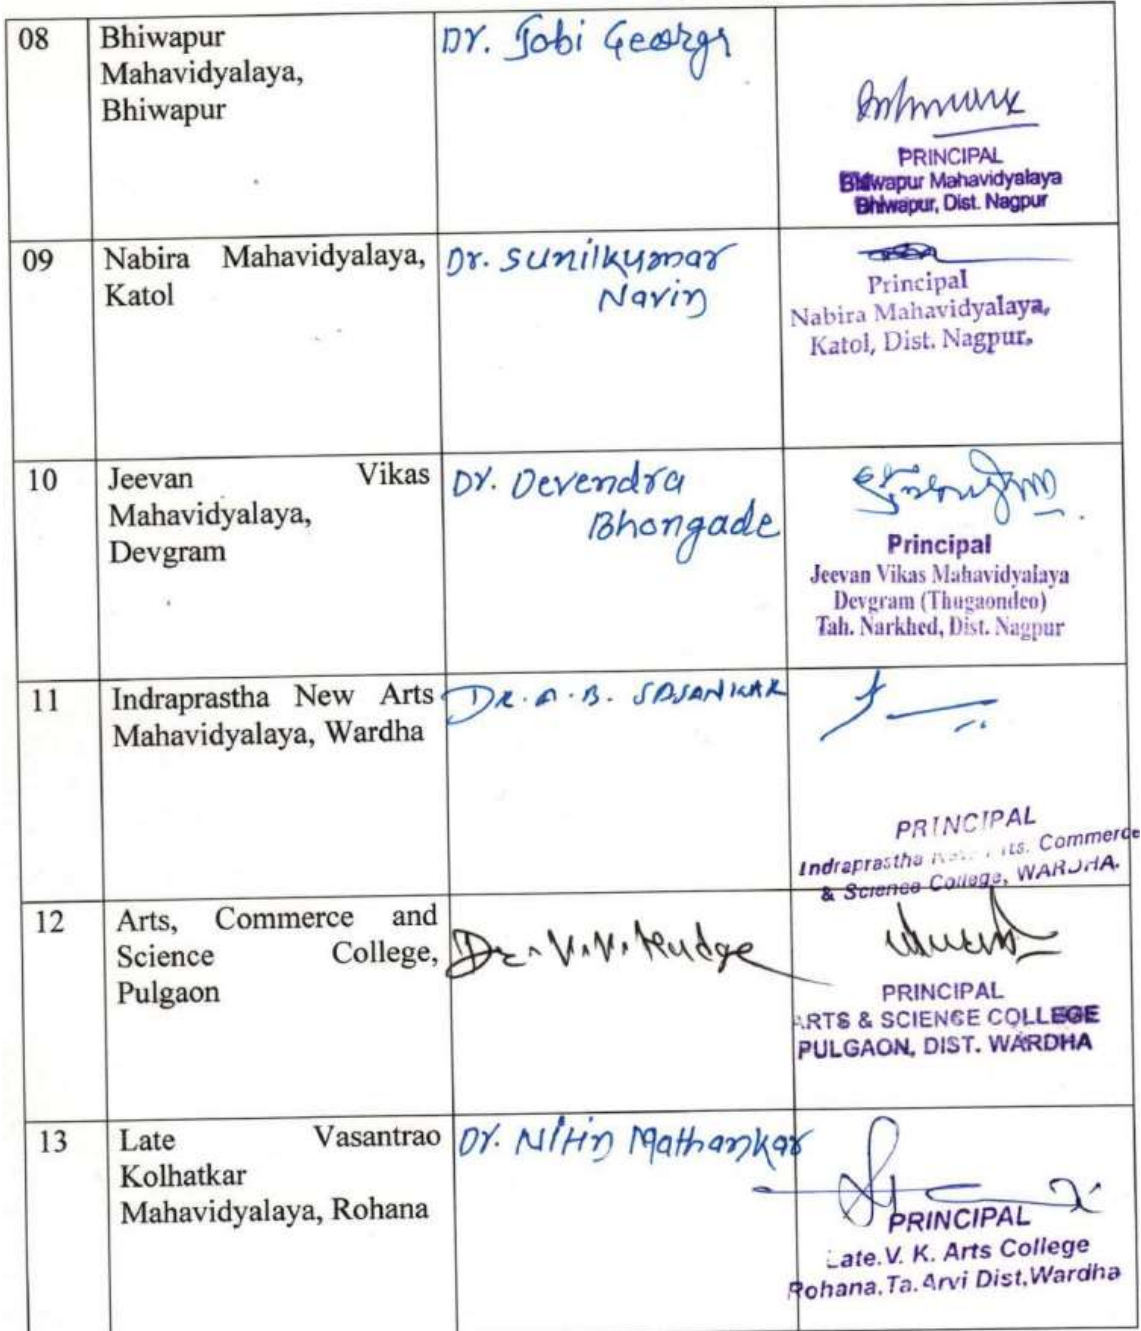 08 Bhiwapur Mahavidyalaya, Bhiwapur
Dr. Jobi George
PRINCIPAL
Bhiwapur Mahavidyalaya
Bhiwapur, Dist. Nagpur
09 Nabira Mahavidyalaya, Katol
Dr. Sunilkumar
Navin
Principal
Nabira Mahavidyalaya,
Katol, Dist. Nagpur.
10 Jeevan Vikas
Mahavidyalaya,
Devgram
Dr. Devendra
Bhongade
Principal
Jeevan Vikas Mahavidyalaya
Devgram (Thugaondeo)
Tah. Narkhed, Dist. Nagpur
11 Indraprastha New Arts
Mahavidyalaya, Wardha
DR. A. B. SASANKAR
PRINCIPAL
Indraprastha New Arts, Commerce
& Science College, WARDHA.
12 Arts, Commerce and
Science College,
Pulgaon
Dr. V. V.
PRINCIPAL
ARTS & SCIENCE COLLEGE
PULGAON, DIST. WARDHA
13 Late Vasantrao
Kolhatkar
Mahavidyalaya, Rohana
Dr. Nitin Mathankar
PRINCIPAL
Late.V. K. Arts College
Rohana.Ta.Arvi Dist.Wardha